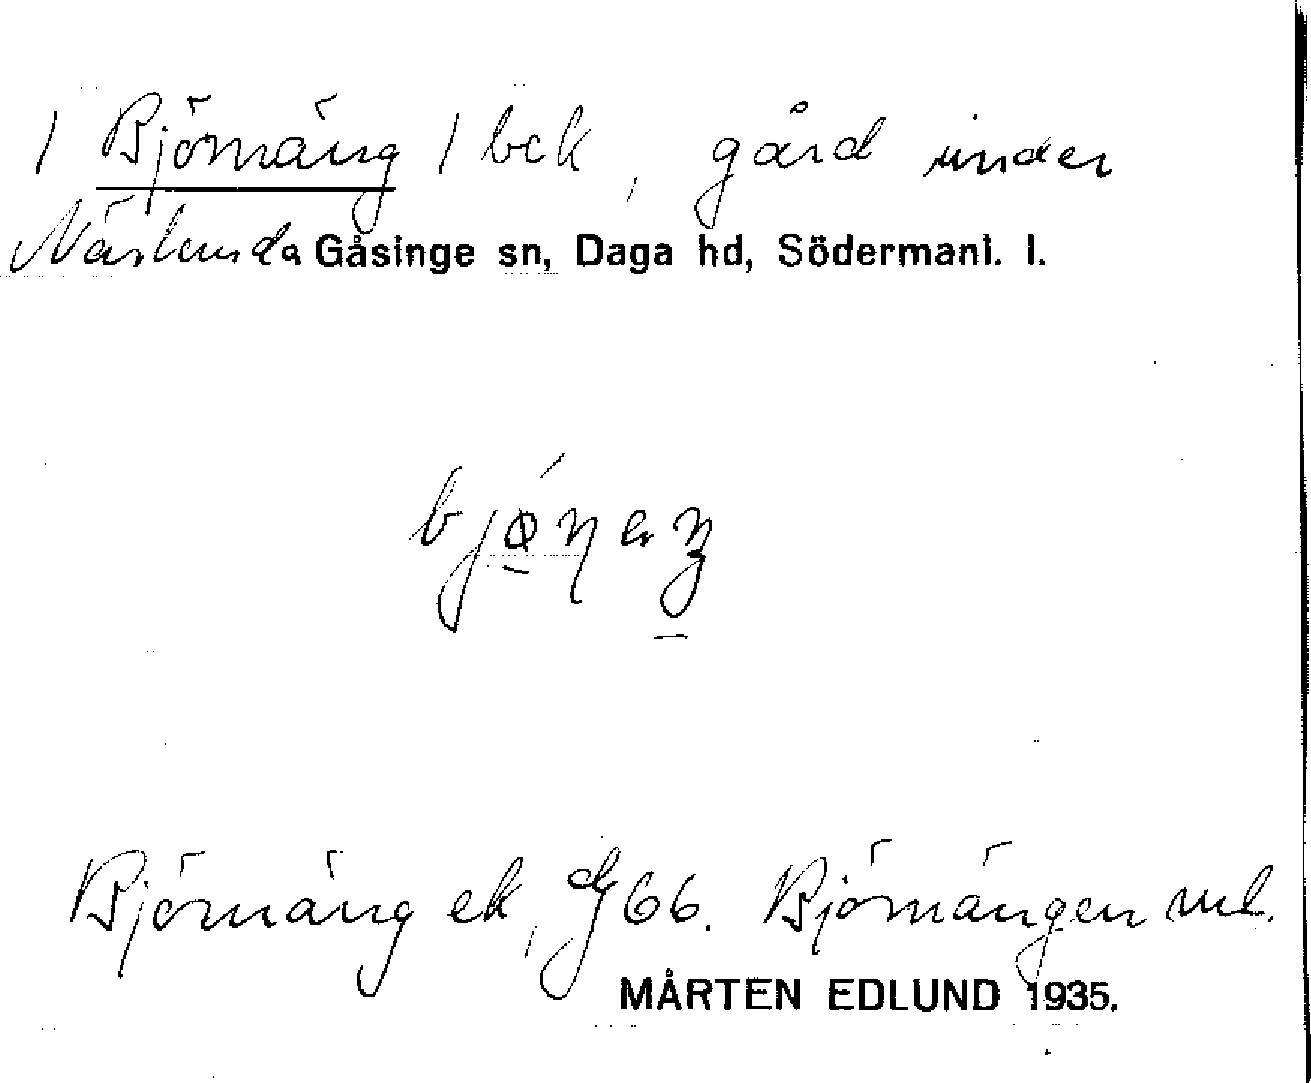 / Björnäng / bck, gård under
Näslunda Gåsinge sn, Daga hd, Södermanl. l.
Björnäng ek, dg 66. Björnängen ml.
MÅRTEN EDLUND 1935.